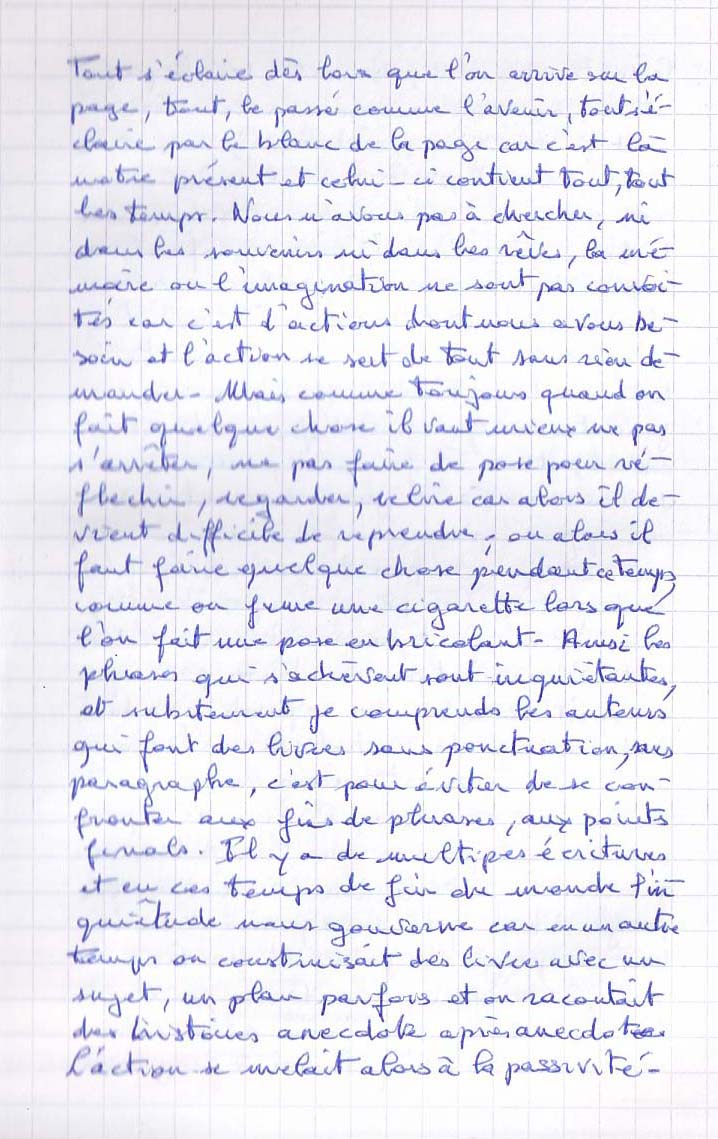 Tout s'éclaire dès lors que l'on arrive sur la
page, tout, le passé comme l'avenir, tout s'é-
claire par le blanc de la page car c'est là
notre présent et celui-ci contient tout, tout
les temps. Nous n'avons pas à chercher, ni
dans les souvenirs ni dans les rêves, la mé-
moire ou l'imagination ne sont pas convoi-
tés car c'est d'actions dont nous avons be-
soin et l'action se sert de tout sans rien de-
mander - Mais comme toujours quand on
fait quelque chose il vaut mieux ne pas
s'arrêter, ne pas faire de pose pour ré-
flechir, regarder, relire car alors il de-
vient difficile de reprendre, ou alors il
faut faire quelque chose pendant ce temps
comme on fume une cigarette lorsque
l'on fait une pose en bricolant - Ainsi les
phrases qui s'achèvent sont inquiétantes,
et subitement je comprends les auteurs
qui font des livres sans ponctuation, sans
paragraphe, c'est pour éviter de se con-
fronter aux fins de phrases, aux points
finals. Il y a de multipes écritures
et en ces temps de fin du monde l'in
quiétude nous gouverne car en un autre
temps on construisait des livres avec un
sujet, un plan parfois et on racontait
des histoires anecdote après anecdote
L'action se mêlait alors à la passivité -